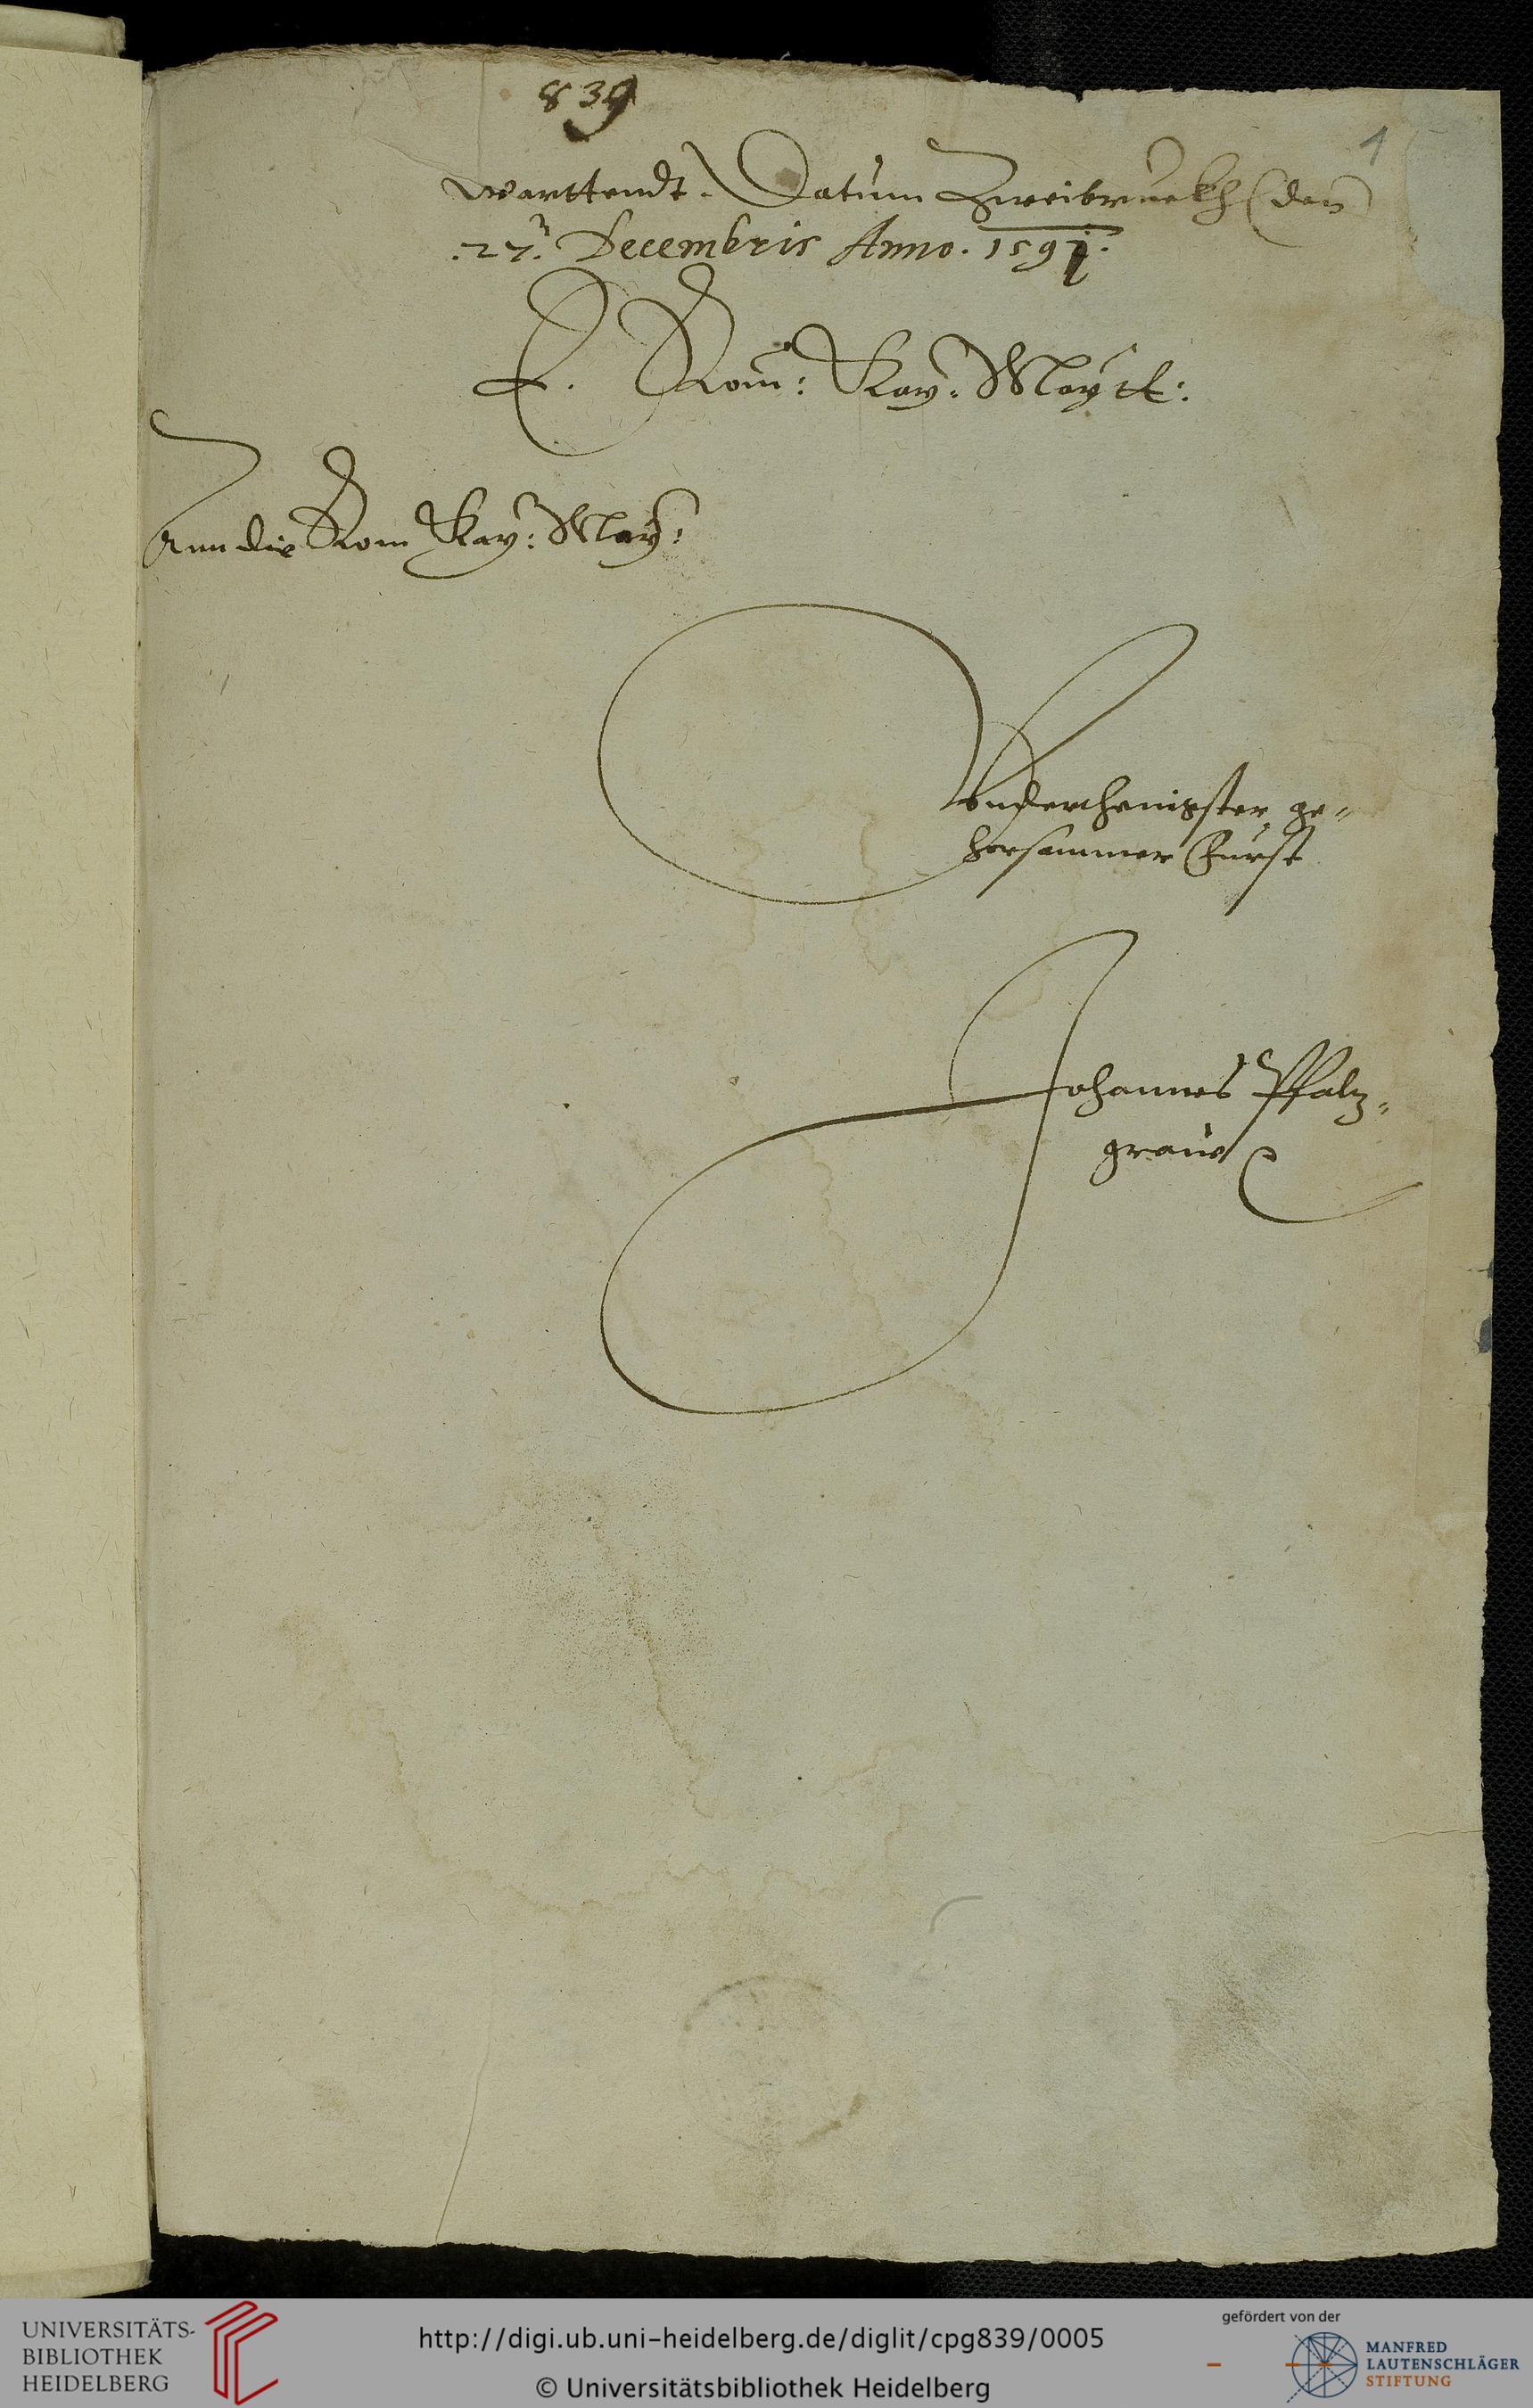 839
1
warttendt. Datum Zweibruckh den
.27. Decembris Anno. 1591.
E. Rom: Kay: Maytt:
Ann die Rom Kay: May:
Vnderthenigster ge-
horsammer Fürst
Johannes Pfaltz-
graue
UNIVERSITÄTS-
BIBLIOTHEK
HEIDELBERG
http://digi.ub.uni-heidelberg.de/diglit/cpg839/0005
© Universitätsbibliothek Heidelberg
gefördert von der
MANFRED
LAUTENSCHLÄGER
STIFTUNG